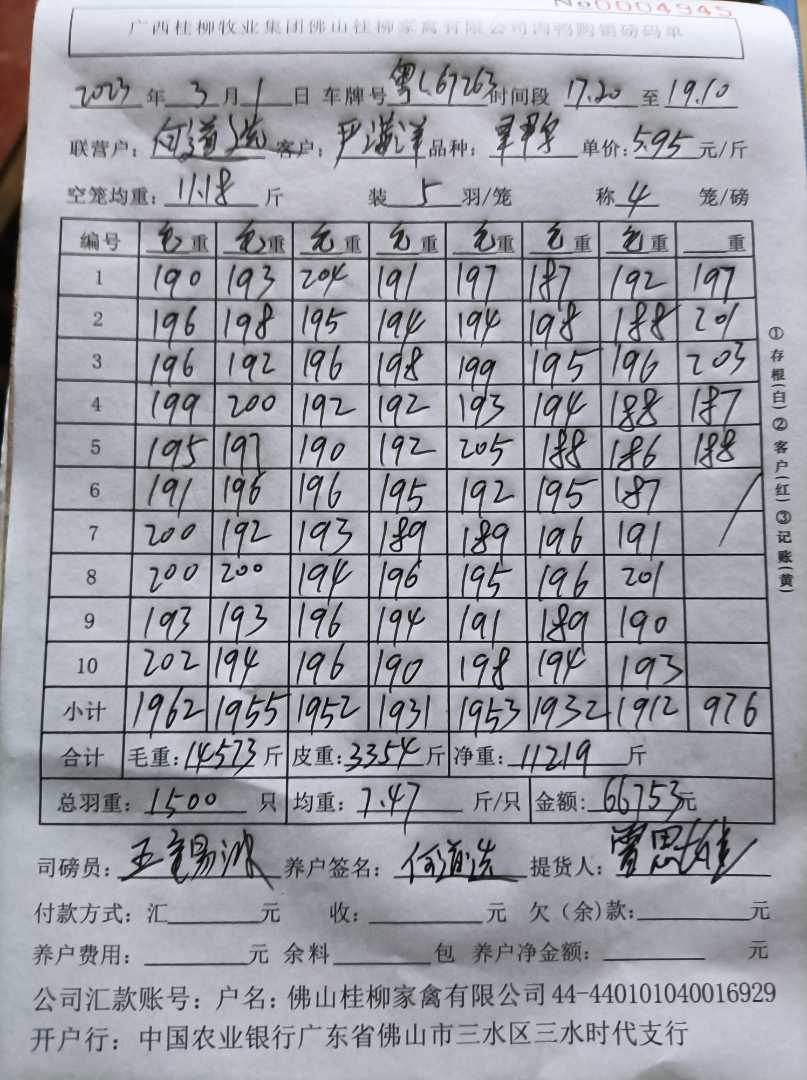 No0004945
广西桂柳牧业集团佛山桂柳家禽有限公司肉鸭购销磅码单
2023年3月1日 车牌号粤L67263时间段17.20至19.10
联营户:何道选 客户:严满洋 品种: 单价:5.95元/斤
空笼均重:11.18斤 装5羽/笼 称4笼/磅
编号 毛重 毛重 毛重 毛重 毛重 毛重 毛重 重
1 190 193 204 191 197 187 192 197
2 196 198 195 194 194 198 188 201
3 196 192 196 198 199 195 196 203
4 199 200 192 192 193 194 188 187
5 195 197 190 192 205 188 186 188
6 191 196 196 195 192 195 187
7 200 192 193 189 189 196 191
8 200 200 194 196 195 196 201
9 193 193 196 194 191 189 190
10 202 194 196 190 198 194 193
小计 1962 1955 1952 1931 1953 1932 1912 976
合计 毛重:14573斤 皮重:3354斤 净重:11219斤
总羽重:1500只 均重:7.47斤/只 金额:66753元
司磅员: 养户签名:何道选 提货人:
付款方式:汇 元 收: 元 欠(余)款: 元
养户费用: 元 余料 包 养户净金额: 元
公司汇款账号:户名:佛山桂柳家禽有限公司44-440101040016929
开户行:中国农业银行广东省佛山市三水区三水时代支行
①存根(白)②客户(红)③记账(黄)